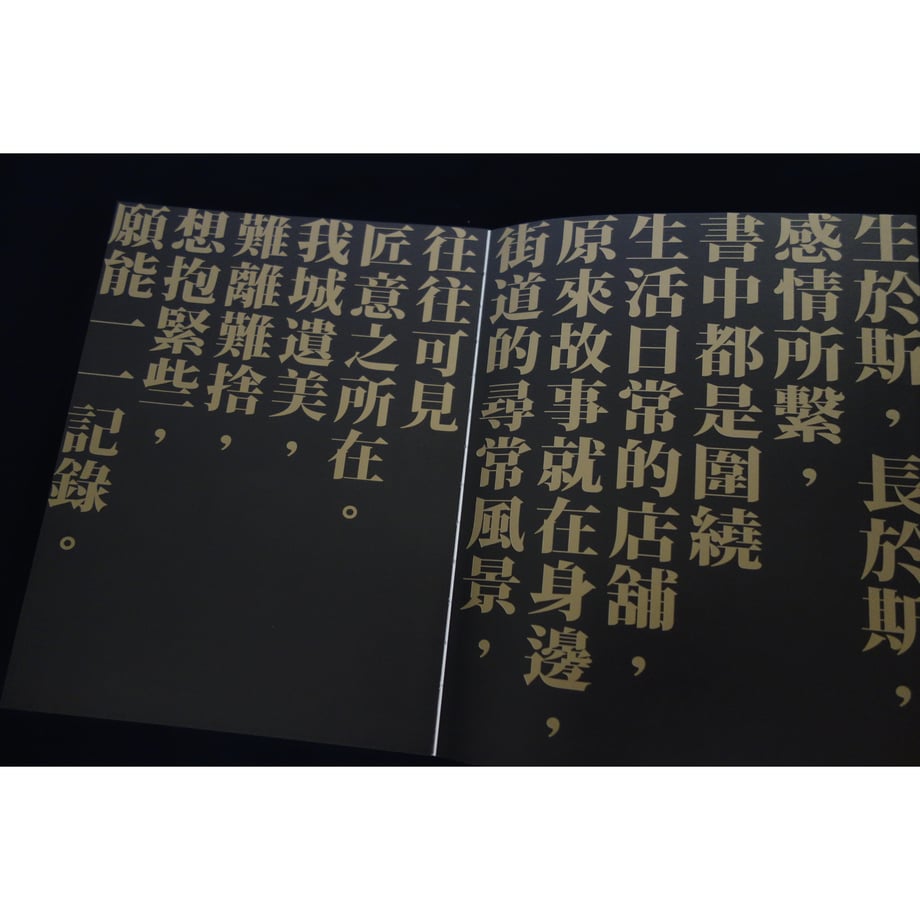 生於斯，長於斯，
感情所繫，
書中都是圍繞
生活日常的店舖，
原來故事就在身邊，
街道的尋常風景，
往往可見
匠意之所在。
我城遺美，
難離難捨，
想抱緊些，
願能一一記錄。